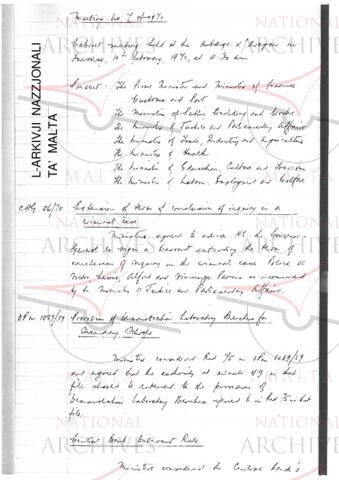 Meeting No. 7 of 1970
Cabinet meeting held at the Auberge d'Aragon on
Tuesday, 10th February, 1970, at
Present: The Prime Minister and Minister of Finance
Customs and Port
The Minister of Public Building and Works
The Minister of Justice and Parliamentary Affairs
The Minister of Trade, Industry and Agriculture
The Minister of Health
The Minister of Education, Culture and Tourism
The Minister of Labour, Employment and Welfare
L-ARKIVJI NAZZJONALI
TA' MALTA
26/70 Extension of term of conclusion of inquiry in a
criminal case
Ministers agreed to advise HE the Governor
General to sign a warrant extending the term of
conclusion of inquiry in the criminal case Police vs
Alfred and as recommended
by the Ministry of Justice and Parliamentary Affairs.
OPM 1089/59 Provision of Demonstration Laboratory Benches for
Secondary Schools
Ministers considered Red 75 in OPM 1089/59
and agreed that the authority at minute 49 in that
file should be extended to the provision of
Demonstration Laboratory Benches referred to in Red 75 in that
file.
Central Bank: Discount Rate
Ministers considered the Central Bank's
NATIONAL
ARCHIVES